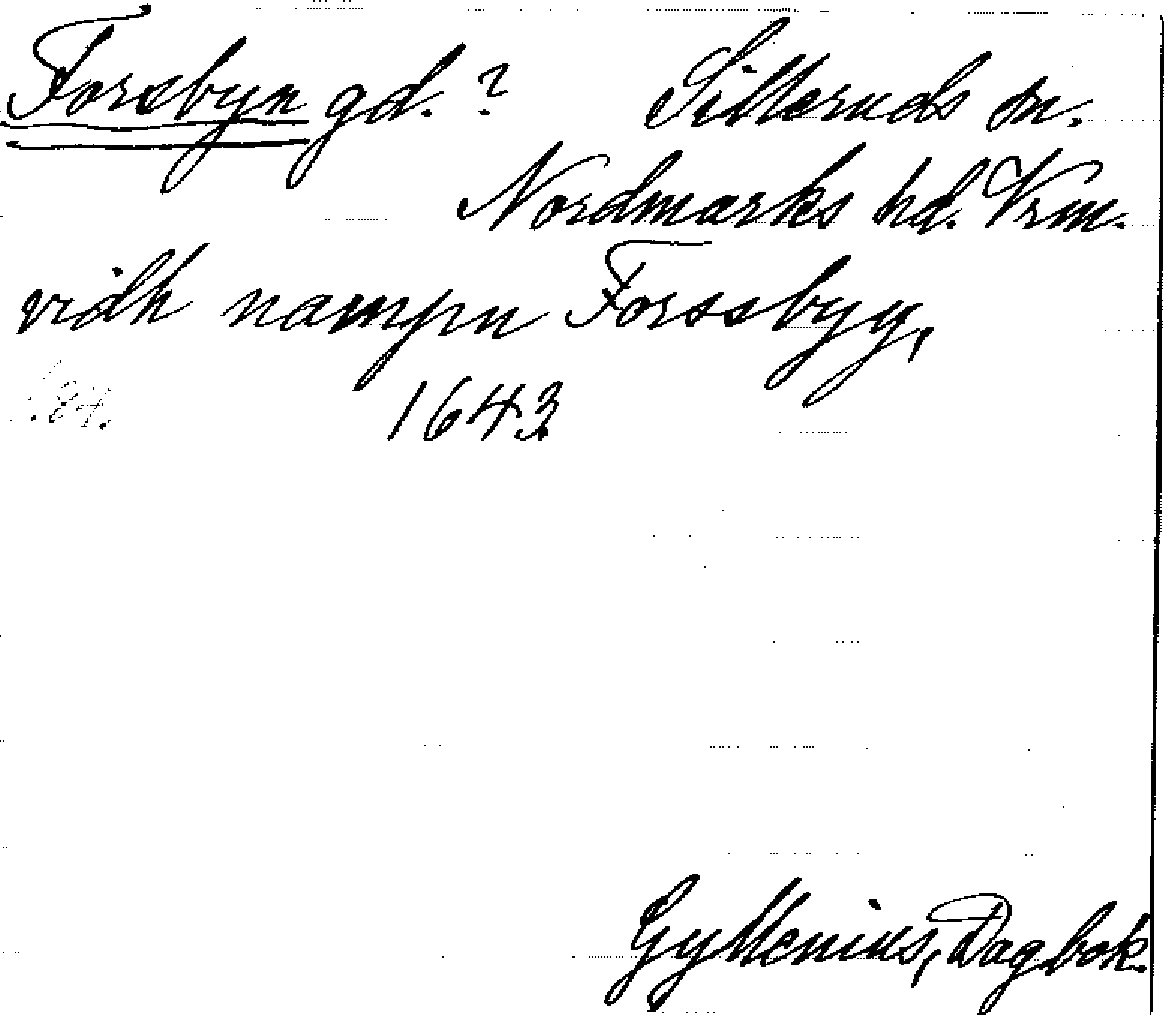 Forsbyn gd. ? Silleruds sn.
Nordmarks hd. Vrm.
vidh nampn Forssbyy,
s. 84. 1643
Gyllenius, Dagbok.